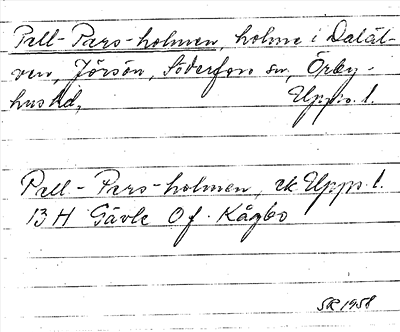 Pell-Pers-holmen, holme i Daläl-
ven, Jörsön, Söderfors sn, Örby-
hus hd, Upps. l.
Pell-Pers-holmen, ek Upps. l.
13 H Gävle 0 f. Kågbo
SR 1958